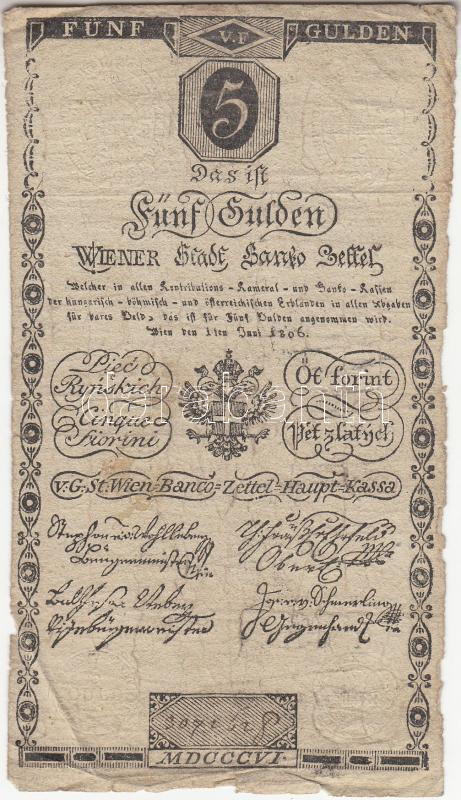 FÜNF V.F GULDEN
5
Das iſt
Fünf Gulden
WIENER Stadt Banko Zettel
Welcher in allen Kontributions - Kameral - und Banko - Kaſſen
der hungariſch - böhmiſch - und öſterreichiſchen Erblanden in allen Abgaben
für bares Geld, das iſt für Fünf Gulden angenommen wird.
Wien den 1ten Juni 1806.
Pięć
Ryńskich
Öt forint
Cinque
Fiorini
Pět zlatých
darabanth
v.G. St. Wien-Banco-Zettel-Haupt-Kassa
Stephan v. Wohlleben
Bürgermeister
Obereinn
Vizebürgermeister
v. Schmerling
Gegenhandl
MDCCCVI.